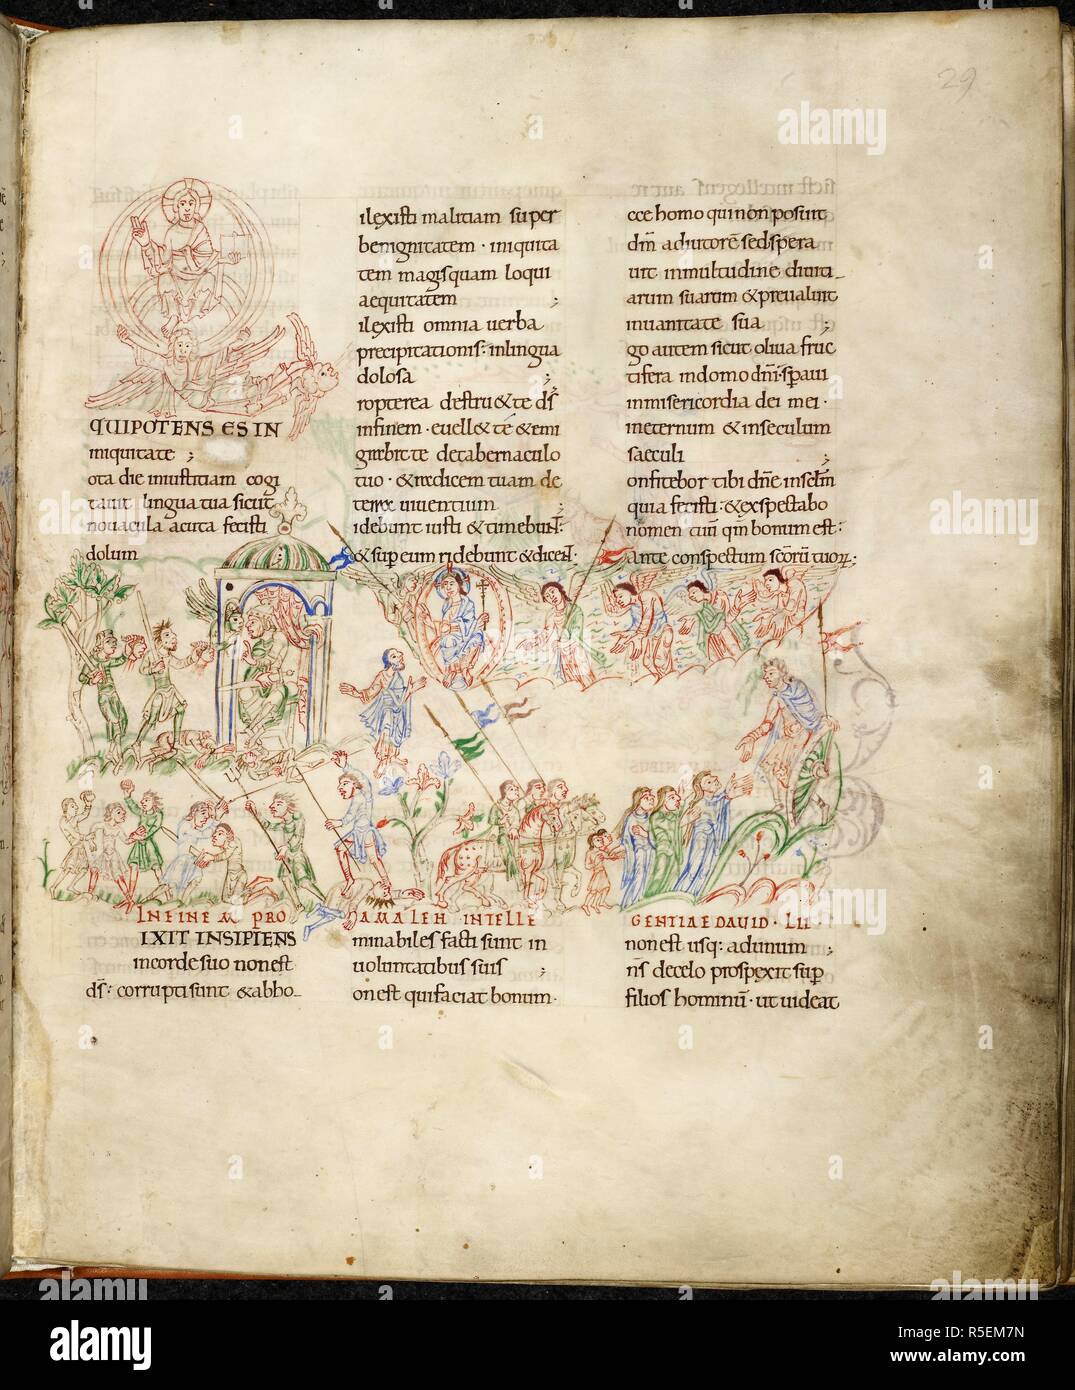 29
QUIPOTENS ES IN
iniquitate ;
ota die iniustitiam cogi
tauit lingua tua sicut
nouacula acuta fecisti
dolum
ilexisti malitiam super
benignitatem · iniquita
tem magisquam loqui
aequitatem ;
ilexisti omnia uerba
precipitationis : inlingua
dolosa ;
ropterea destru&te ds̄
infinem · euell& te & emi
grabit te detabernaculo
tuo · & radicem tuam de
terra uiuentium ;
idebunt iusti & timebunt :
& sup eum ridebunt & dicent :
cce homo quinon posuit
dm̄ adiutorē sedspera
uit inmultitudine diuiti
arum suarum & preualuit
inuanitate sua ;
go autem sicut oliua fruc
tifera indomo dn̄i · speraui
inmisericordia dei mei ·
ineternum & inseculum
saeculi ;
onfitebor tibi dn̄e inseculum
quia fecisti : & exspectabo
nomen tuū qm̄ bonum est :
ante conspectum sc̄orū tuorum ;
IN FINEM PRO AMALEH INTELLE GENTIAE DAUID · LII ·
IXIT INSIPIENS
incorde suo nonest
ds̄ : corrupti sunt & abho
minabiles facti sunt in
uoluntatibus suis ;
onest quifaciat bonum ·
nonest usq: adunum ;
n̄s decelo prospexit sup
filios hominū · ut uideat
alamy
British Library
R5EM7N
www.alamy.com